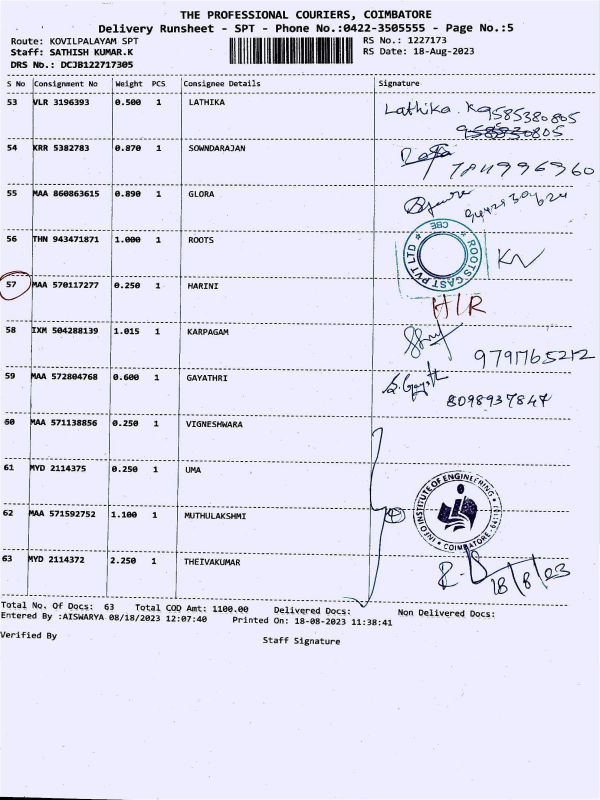 THE PROFESSIONAL COURIERS, COIMBATORE
Delivery Runsheet - SPT - Phone No.:0422-3505555 - Page No.:5
Route: KOVILPALAYAM SPT RS No.: 1227173
Staff: SATHISH KUMAR.K RS Date: 18-Aug-2023
DRS No.: DCJB122717305
S No Consignment No Weight PCS Consignee Details Signature
53 VLR 3196393 0.500 1 LATHIKA Lathika. K 9585380805
9585380805
54 KRR 5382783 0.870 1 SOWNDARAJAN
55 MAA 860863615 0.890 1 GLORA
56 THN 943471871 1.000 1 ROOTS ROOTS CAST PVT LTD CBE
57 MAA 570117277 0.250 1 HARINI HIR
58 IXM 504288139 1.015 1 KARPAGAM
9791765212
59 MAA 572804768 0.600 1 GAYATHRI S. Gayath
8098937847
60 MAA 571138856 0.250 1 VIGNESHWARA
61 MYD 2114375 0.250 1 UMA
62 MAA 571592752 1.100 1 MUTHULAKSHMI 4 INFO INSTITUTE OF ENGINEERING COIMBATORE
63 MYD 2114372 2.250 1 THEIVAKUMAR 18/8/23
Total No. Of Docs: 63 Total COD Amt: 1100.00 Delivered Docs: Non Delivered Docs:
Entered By :AISWARYA 08/18/2023 12:07:40 Printed On: 18-08-2023 11:38:41
Verified By Staff Signature